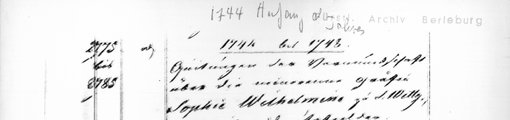 1744 Anfang
Archiv Berleburg
2775
bis
2783
1744 bis 1748.
Quittungen der Vormundschaft
über die minorenne Gräfin
Sophie Wilhelmine zu S. Wittg.,